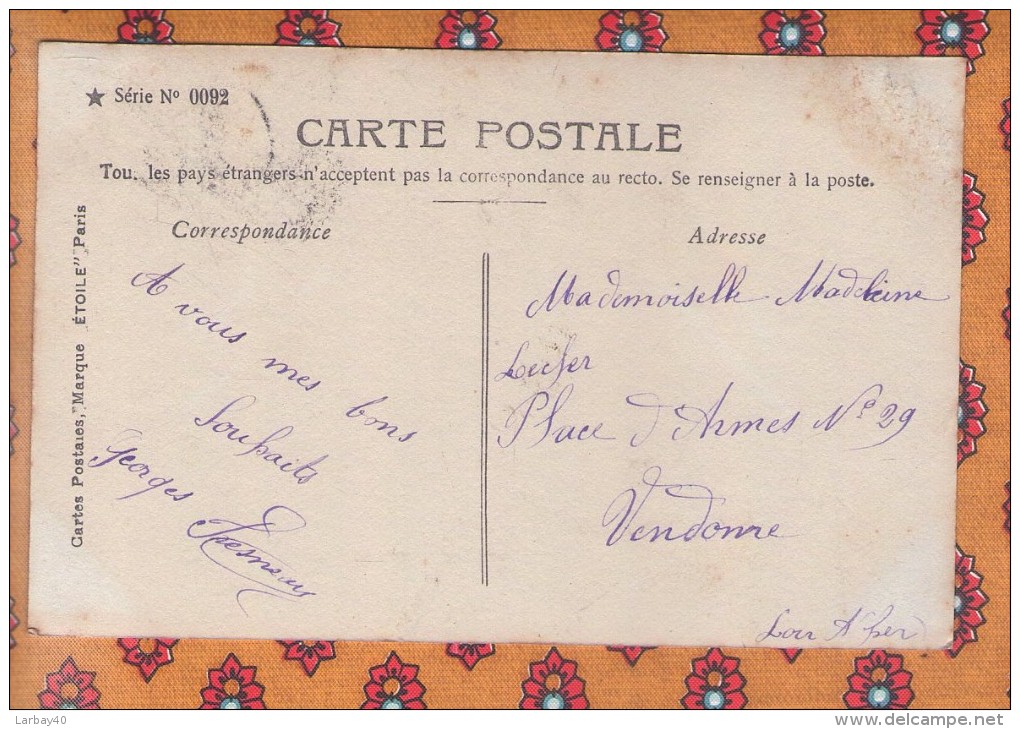 ★ Série Nº 0092
CARTE POSTALE
Tou. les pays étrangers n'acceptent pas la correspondance au recto. Se renseigner à la poste.
Cartes Postales, "Marque ÉTOILE" Paris
Correspondance
A vous mes bons
Souhaits
Georges
Adresse
Mademoiselle Madeleine
Place d'Armes Nº 29
Vendome
Loir & Cher
Larbay40
www.delcampe.net